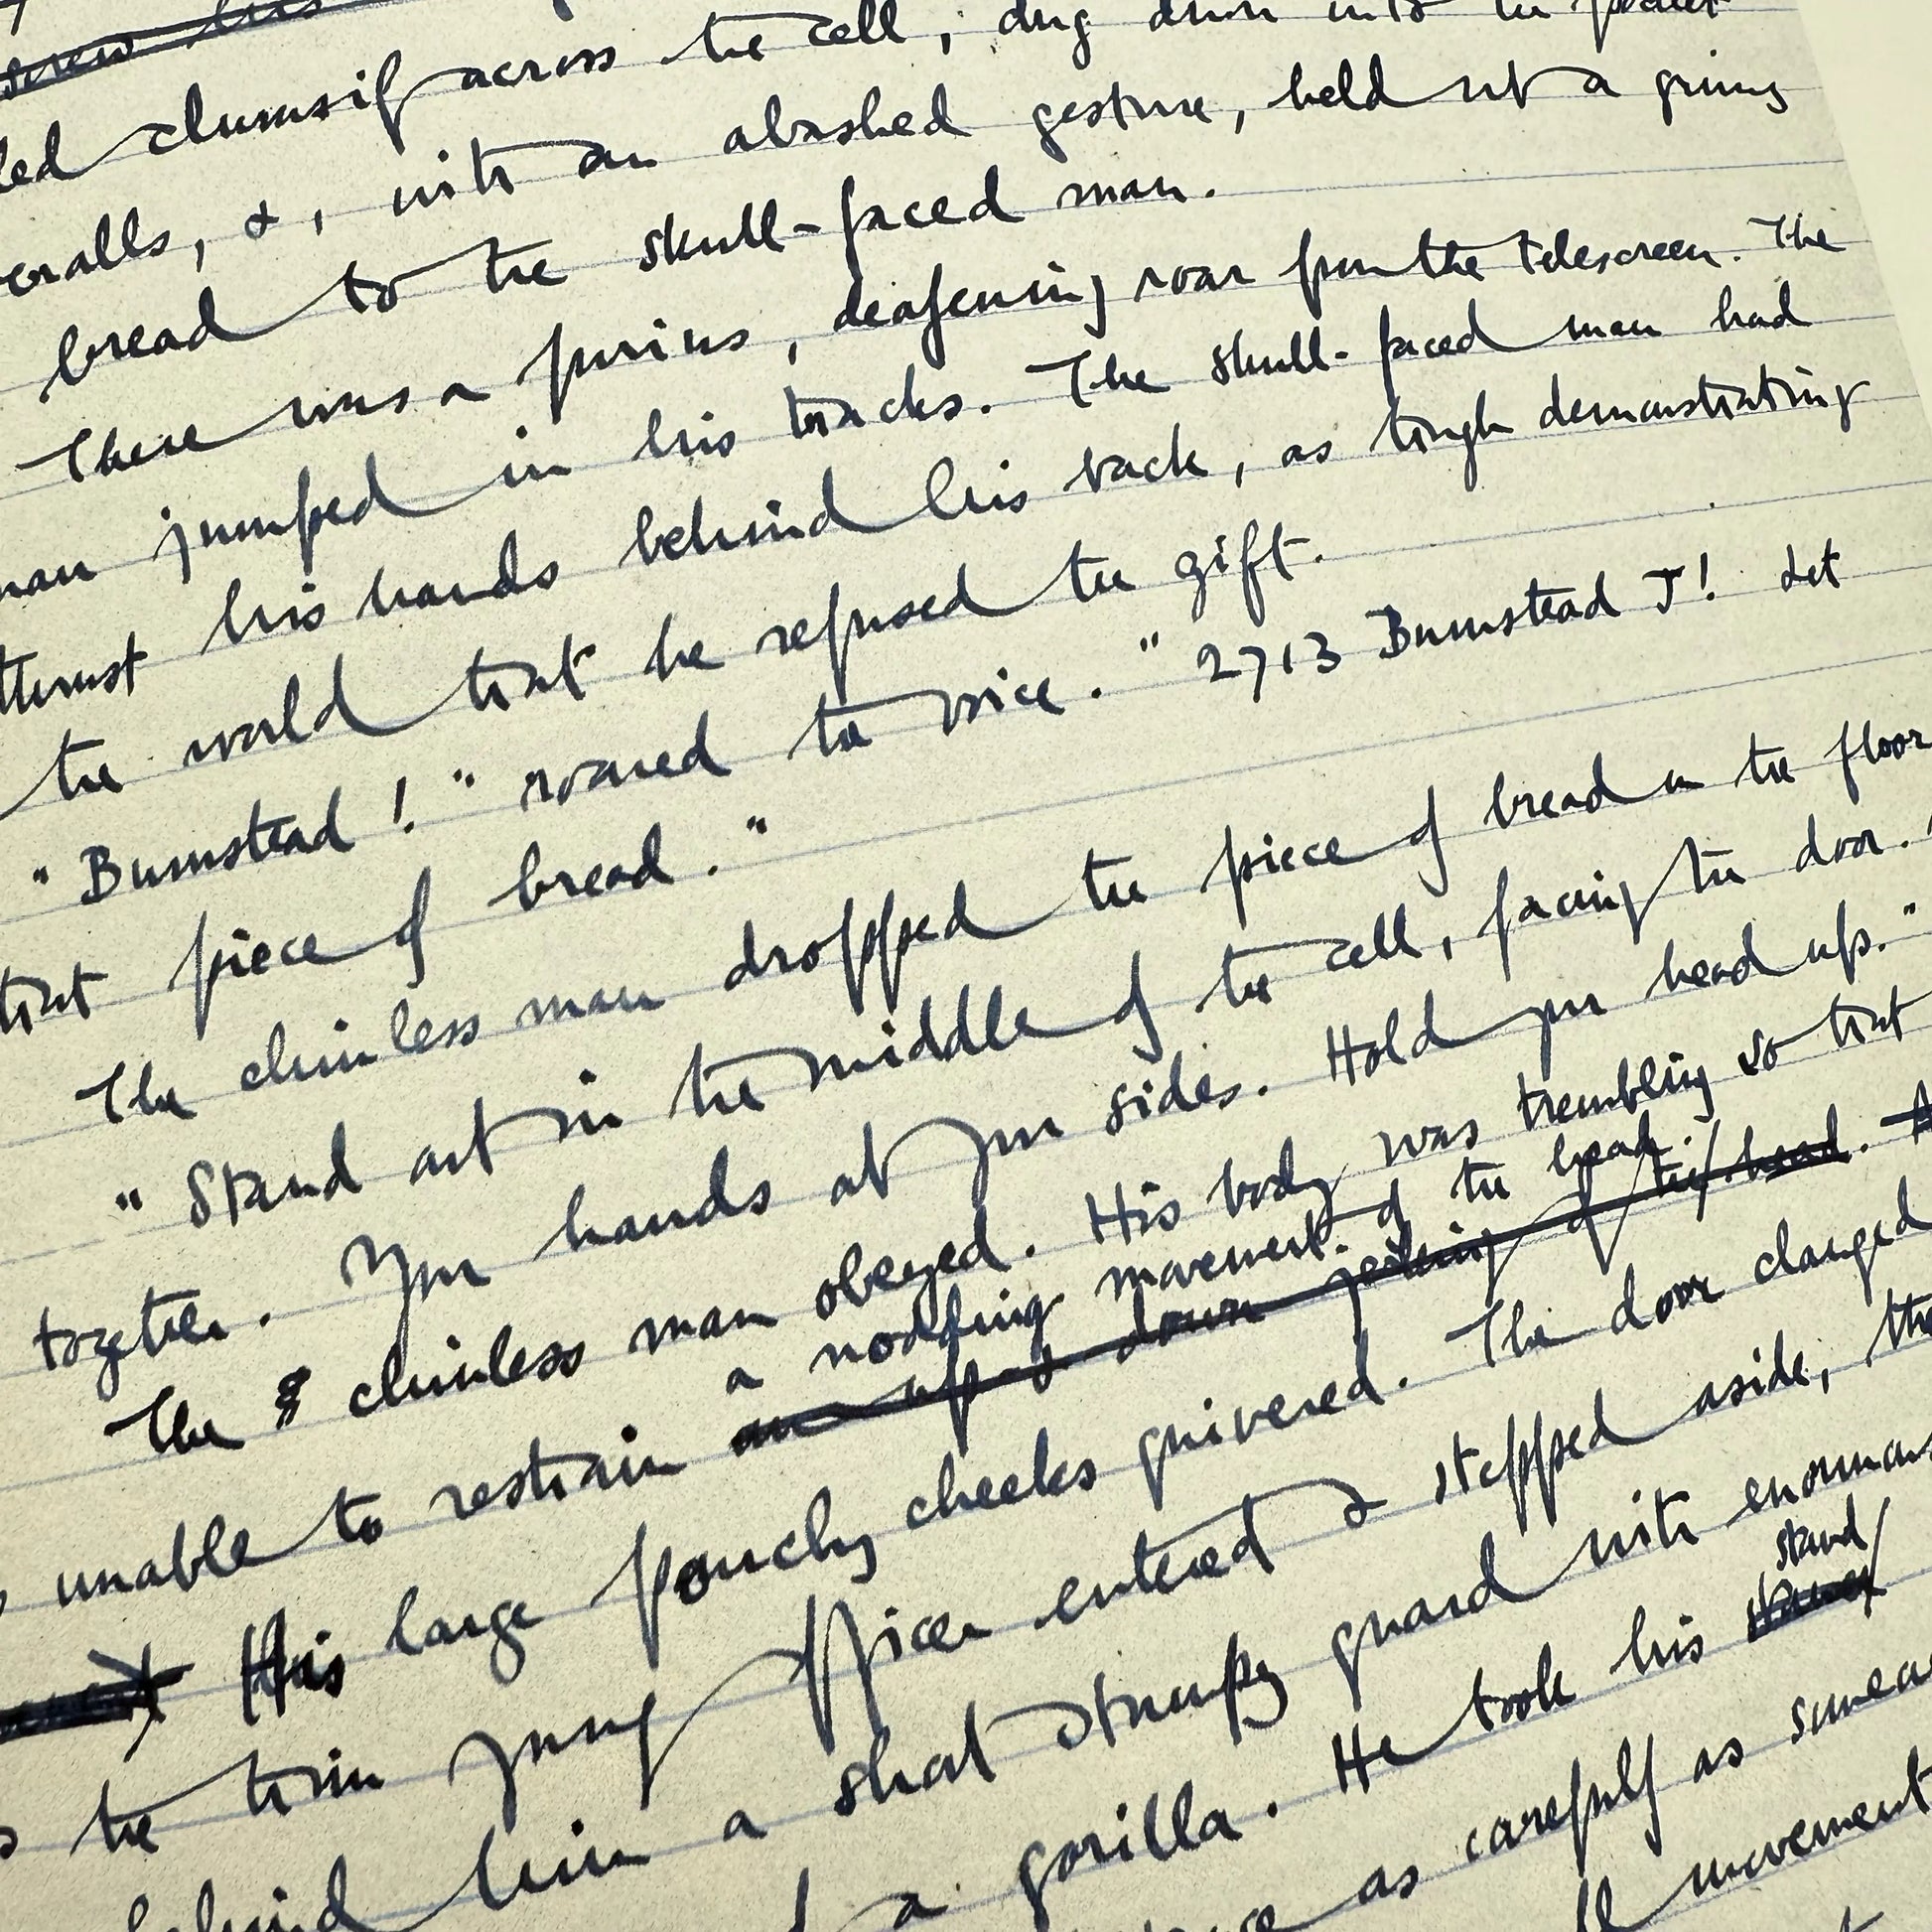 screw his
led clumsily across the cell, dug down into the pocket
eralls, &, with an abashed gesture, held out a grimy
bread to the skull-faced man.
There was a furious, deafening roar from the telescreen. The
man jumped in his tracks. The skull-faced man had
thrust his hands behind his back, as though demonstrating
the world that he refused the gift.
"Bumstead!" roared the voice. "2713 Bumstead J! Let
that piece of bread."
The chinless man dropped the piece of bread on the floor
"Stand out in the middle of the cell, facing the door.
together. Your hands at your sides. Hold your head up."
The chinless man obeyed. His body was trembling so that
a nodding movement of the head.
unable to restrain an up & down jerking of the head.
His large pouchy cheeks quivered. The door clanged
the trim young officer entered & stepped aside, the
behind him a short stumpy guard with enormous
stand
a gorilla. He took his
as carefully as
movement